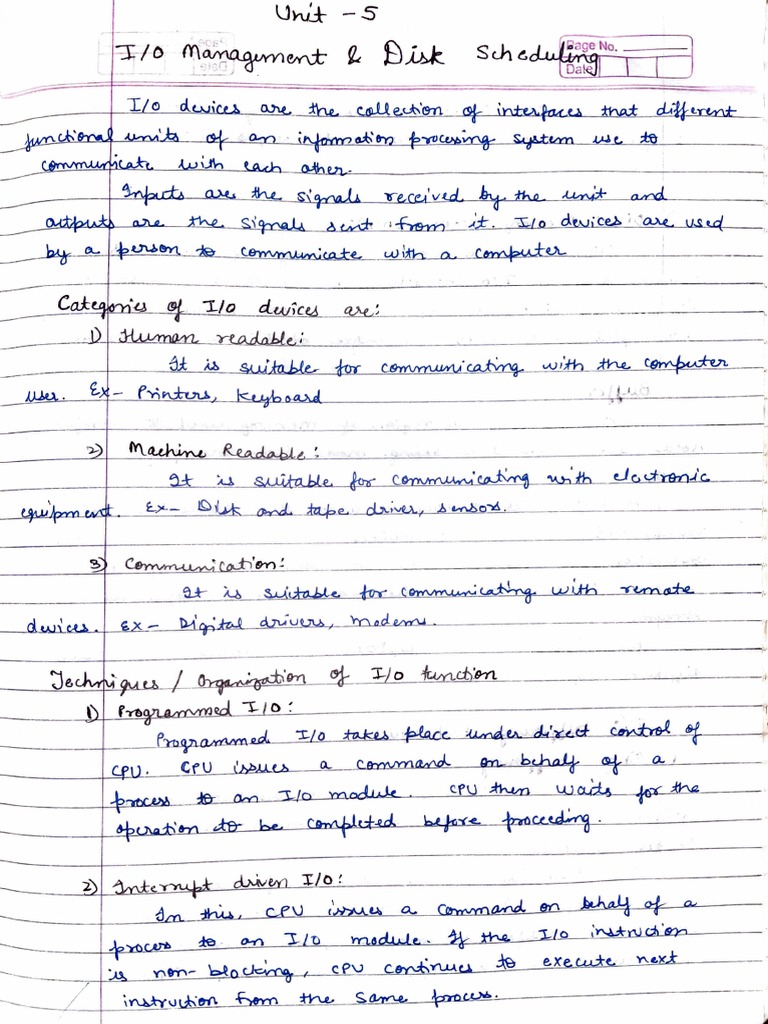 Unit - 5
I/O Management & Disk Scheduling
Page No.
Date
I/O devices are the collection of interfaces that different
functional units of an information processing system use to
communicate with each other.
Inputs are the signals received by the unit and
outputs are the signals sent from it. I/O devices are used
by a person to communicate with a computer
Categories of I/O devices are:
1) Human readable:
It is suitable for communicating with the computer
user. Ex- Printers, Keyboard
2) Machine Readable:
It is suitable for communicating with electronic
equipment. Ex- Disk and tape driver, sensors.
3) Communication:
It is suitable for communicating with remote
devices. Ex- Digital drivers, Modems.
Techniques / Organization of I/O function
1) Programmed I/O:
Programmed I/O takes place under direct control of
CPU. CPU issues a command on behalf of a
process to an I/O module. CPU then waits for the
operation to be completed before proceeding.
2) Interrupt driven I/O:
In this, CPU issues a command on behalf of a
process to an I/O module. If the I/O instruction
is non-blocking, CPU continues to execute next
instruction from the same process.